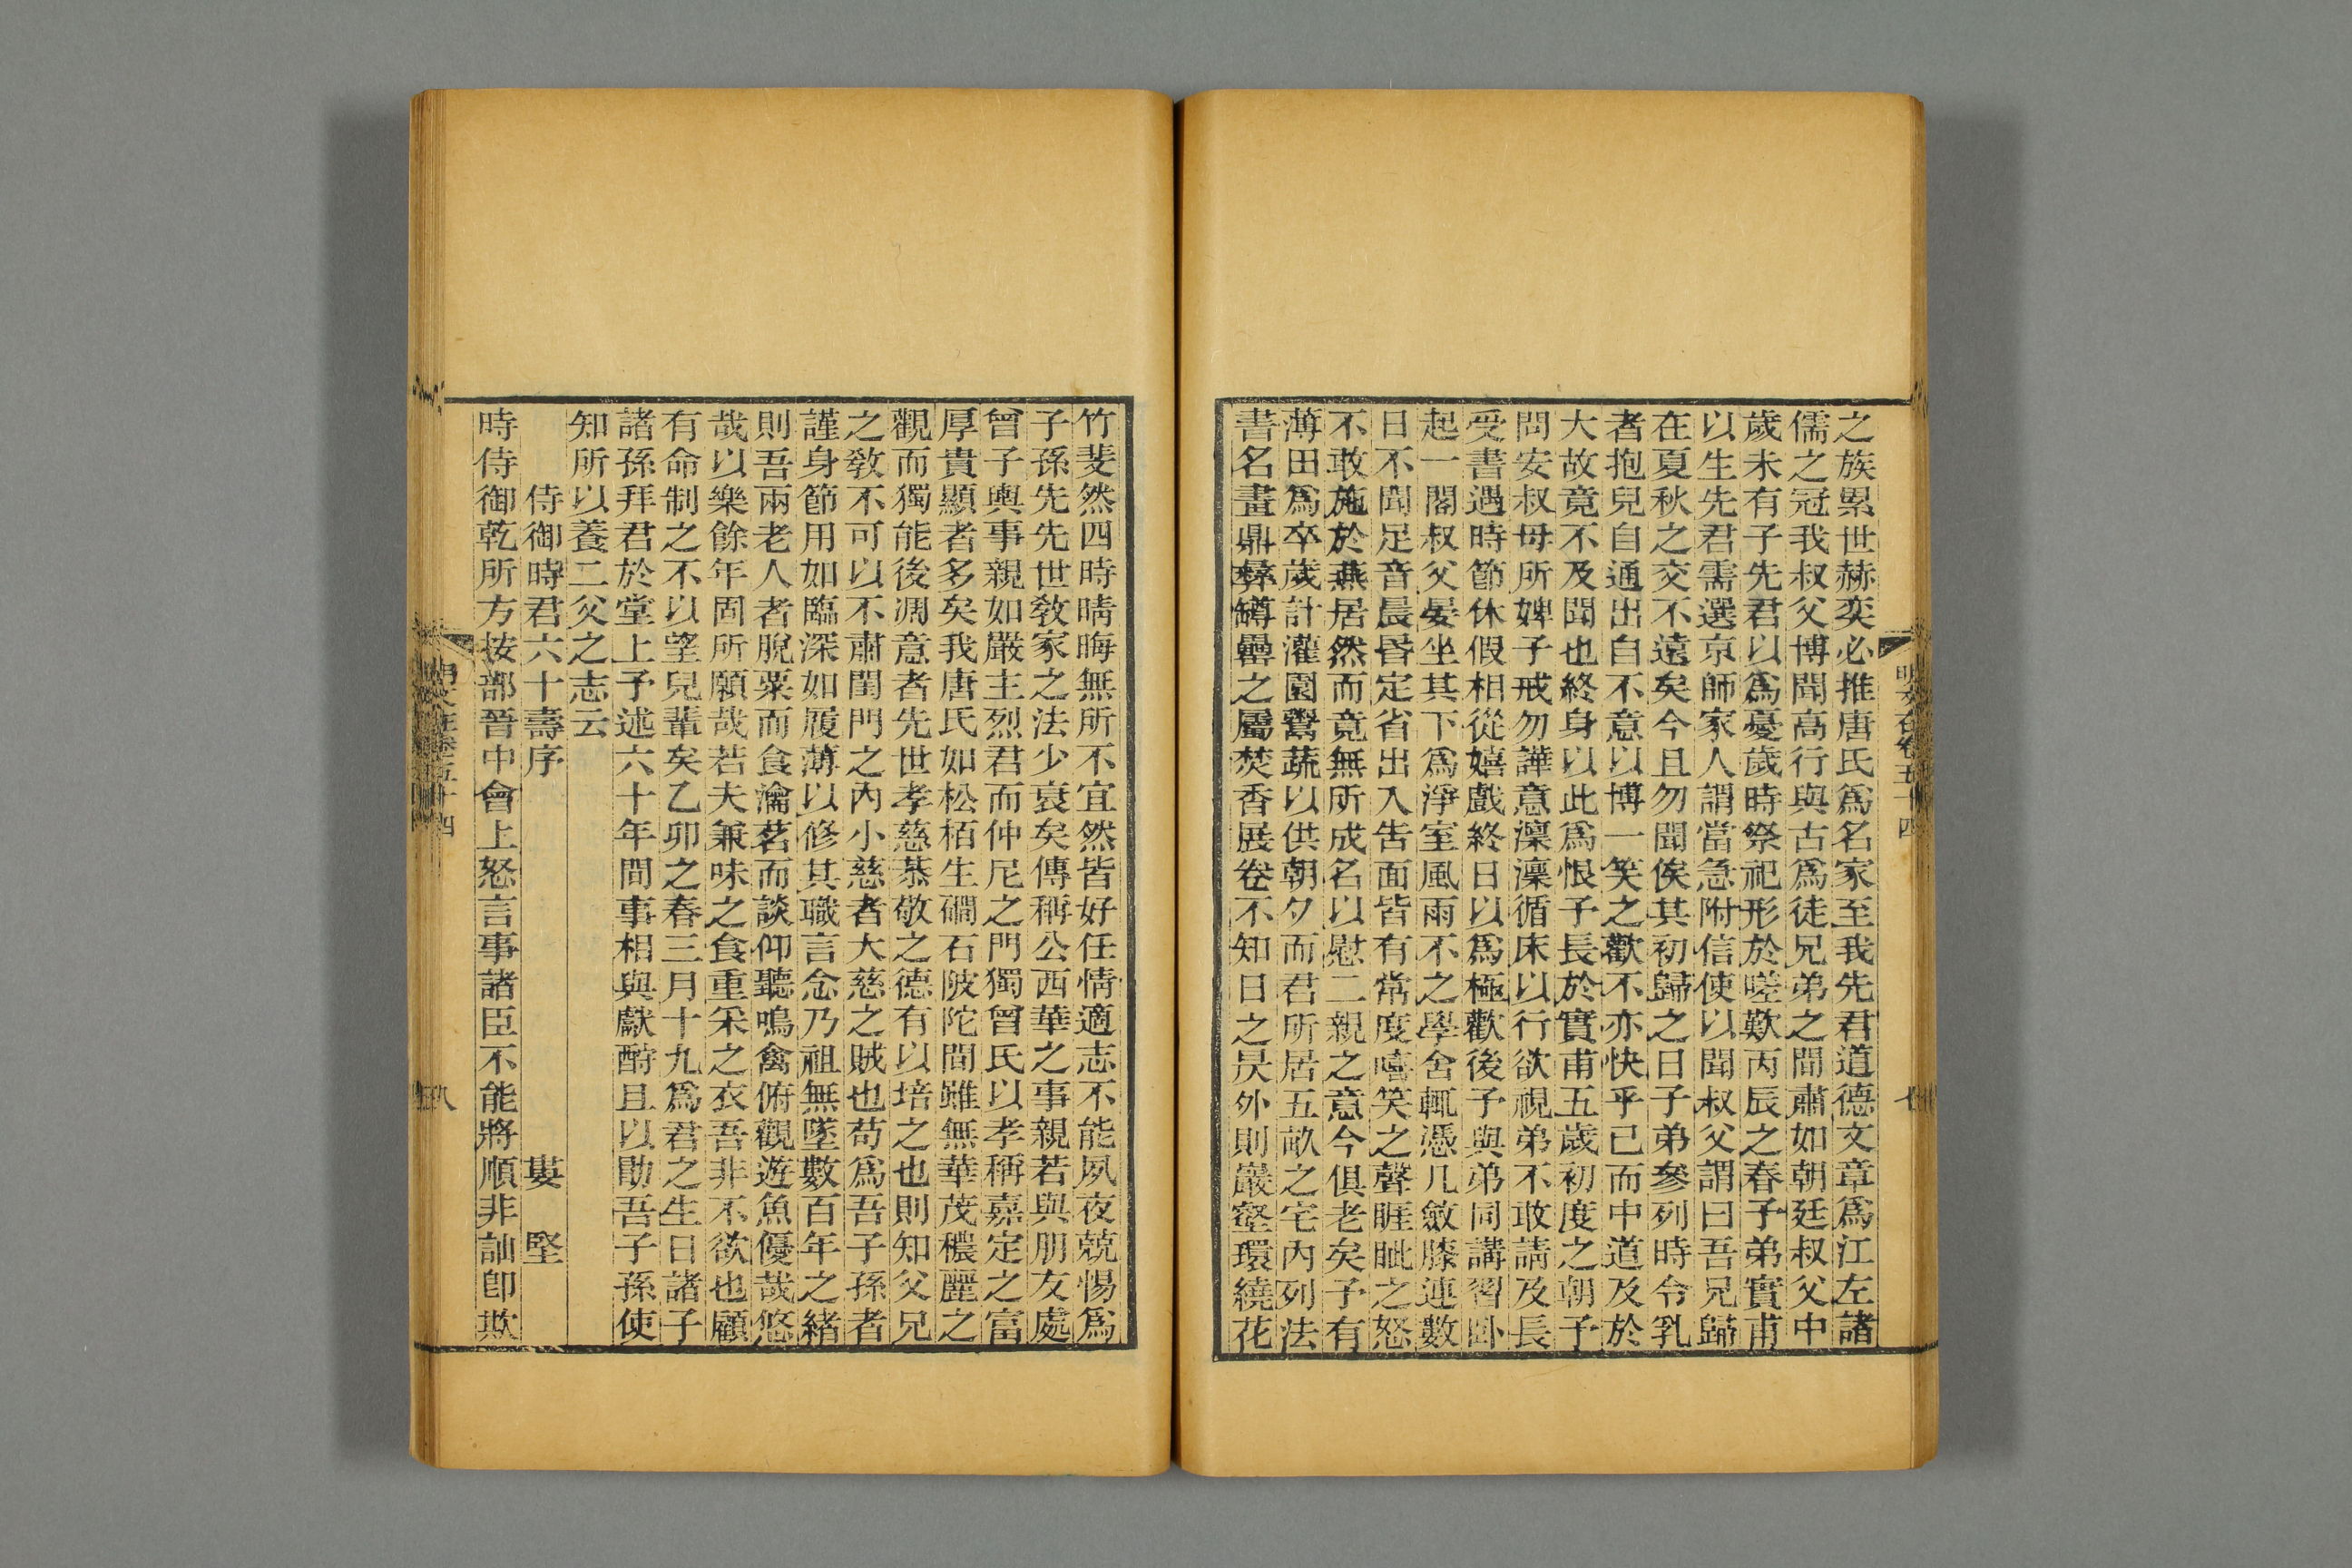 之族累世赫奕必推唐氏爲名家至我先君道德文章爲江左諸
儒之冠我叔父博聞高行與古爲徒兄弟之間肅如朝廷叔父中
歲未有子先君以爲憂歲時祭祀形於嗟歎丙辰之春子弟實甫
以生先君需選京師家人謂當急附信使以聞叔父謂曰吾兄歸
在夏秋之交不遠矣今且勿聞俟其初歸之日子弟參列時令乳
者抱兒自通出自不意以博一笑之歡不亦快乎已而中道及於
大故竟不及聞也終身以此爲恨子長於實甫五歲初度之朝予
問安叔母所婢子戒勿譁意凜凜循床以行欲視弟不敢請及長
受書遇時節休假相從嬉戲終日以爲極歡後予與弟同講習卧
起一閣叔父晏坐其下爲淨室風雨不之學舍輒憑几斂膝連數
日不聞足音晨昏定省出入告面皆有常度嘻笑之聲睚眦之怒
不敢施於燕居然而竟無所成名以慰二親之意今俱老矣予有
薄田爲卒歲計灌園鬻蔬以供朝夕而君所居五畝之宅內列法
書名畫鼎彝罇罍之屬焚香展卷不知日之昃外則巖壑環繞花
明文在卷五十四
七
竹斐然四時晴晦無所不宜然皆好任情適志不能夙夜兢惕爲
子孫先先世敎家之法少衰矣傳稱公西華之事親若與朋友處
曾子輿事親如嚴主烈君而仲尼之門獨曾氏以孝稱嘉定之富
厚貴顯者多矣我唐氏如松栢生磵石陂陀間雖無華茂穠麗之
觀而獨能後凋意者先世孝慈恭敬之德有以培之也則知父兄
之敎不可以不肅閨門之內小慈者大慈之賊也苟爲吾子孫者
謹身節用如臨深如履薄以修其職言念乃祖無墜數百年之緒
則吾兩老人者脫粟而食瀹茗而談仰聽鳴禽俯觀遊魚優哉悠
哉以樂餘年固所願哉若夫兼味之食重采之衣吾非不欲也顧
有命制之不以望兒輩矣乙卯之春三月十九爲君之生日諸子
諸孫拜君於堂上予述六十年間事相與獻酧且以勖吾子孫使
知所以養二父之志云
侍御時君六十壽序　婁　堅
時侍御乾所方按部晉中會上怒言事諸臣不能將順非訕卽欺
明文在卷五十四
八